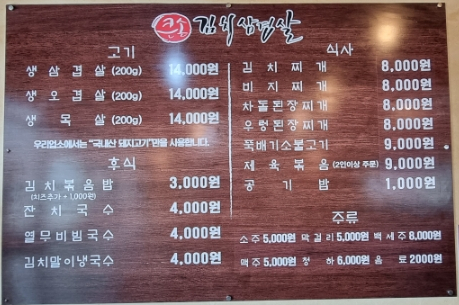 큰손 김치삼겹살
고기
생삼겹살(200g) 14,000원
생오겹살(200g) 14,000원
생목살(200g) 14,000원
우리업소에서는 "국내산 돼지고기"만을 사용합니다.
후식
김치볶음밥 3,000원
(치즈추가 + 1,000원)
잔치국수 4,000원
열무비빔국수 4,000원
김치말이냉국수 4,000원
식사
김치찌개 8,000원
비지찌개 8,000원
차돌된장찌개 8,000원
우렁된장찌개 8,000원
뚝배기소불고기 9,000원
제육볶음(2인이상 주문) 9,000원
공기밥 1,000원
주류
소주 5,000원 막걸리 5,000원 백세주 8,000원
맥주 5,000원 청하 6,000원 음료 2000원